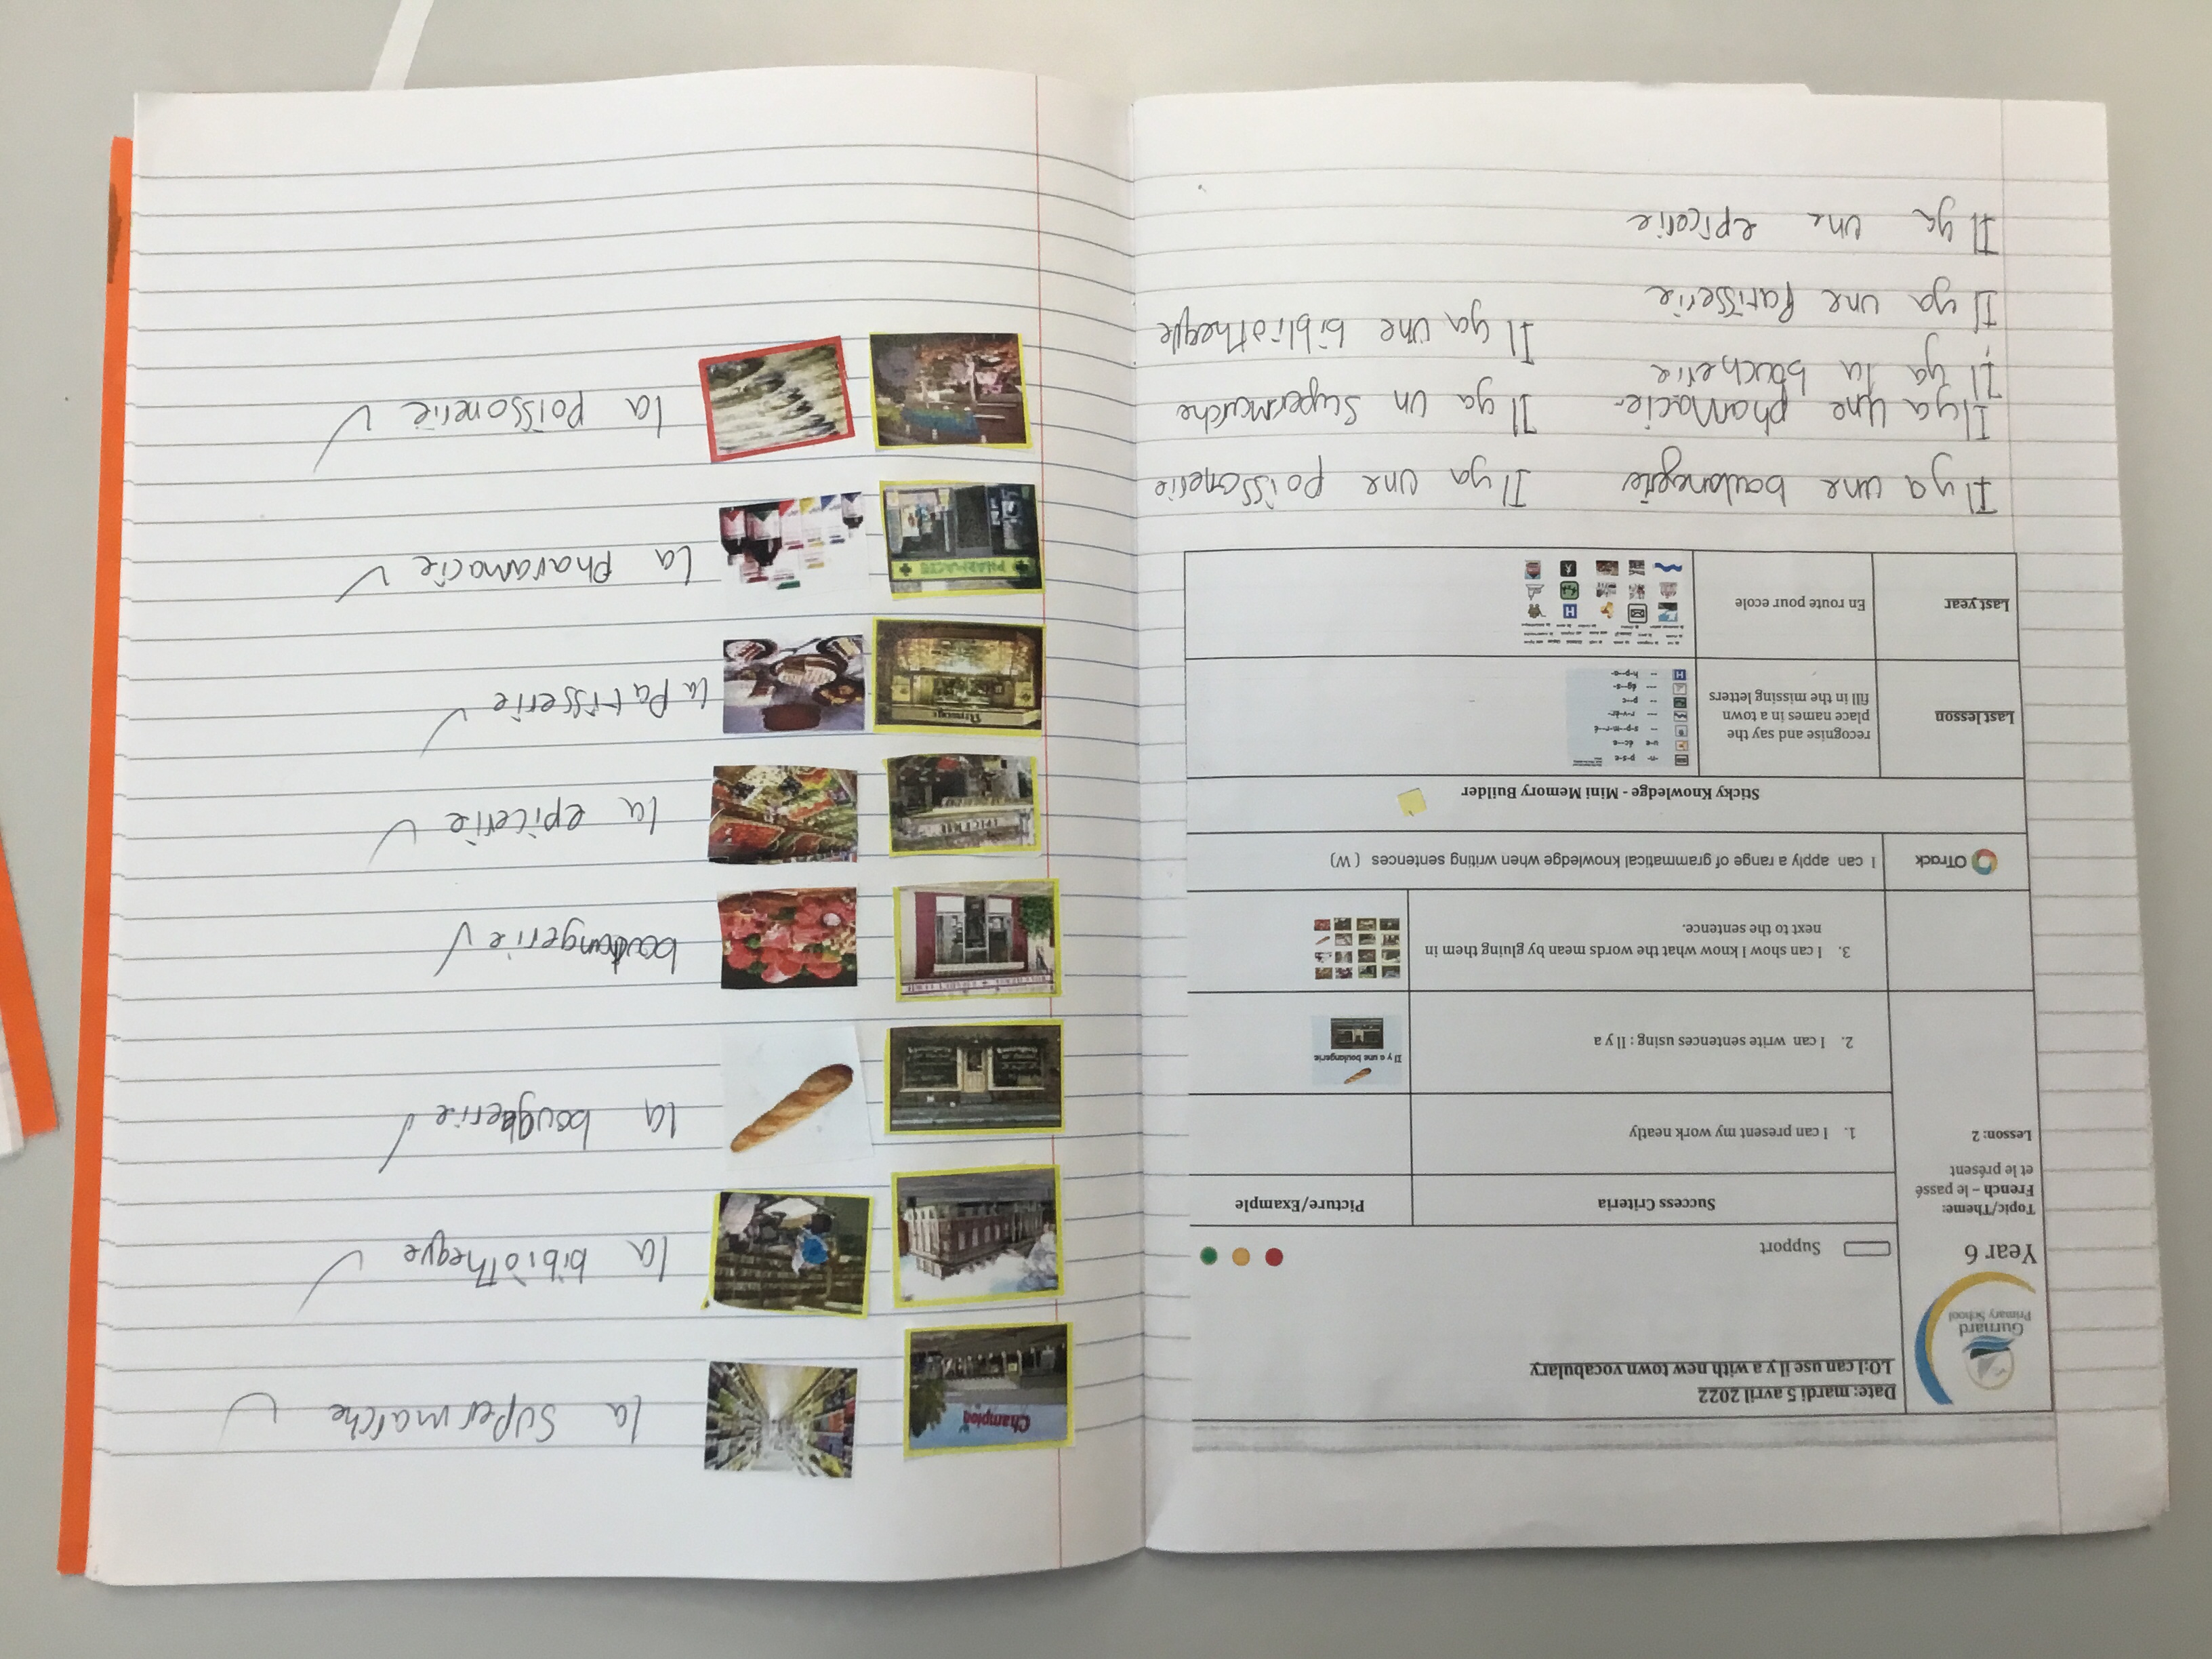 Gurnard
Primary School
Year 6
Topic/Theme:
French – le passé
et le présent
Lesson: 2
Date: mardi 5 avril 2022
LO:I can use il y a with new town vocabulary
Support
Success Criteria
Picture/Example
1. I can present my work neatly
2. I can write sentences using : Il y a
Il y a une boulangerie
3. I can show I know what the words mean by gluing them in
next to the sentence.
OTrack
I can apply a range of grammatical knowledge when writing sentences (W)
Sticky Knowledge - Mini Memory Builder
Last lesson
recognise and say the
place names in a town
fill in the missing letters
Last year
En route pour ecole
Il ya une
Il ya une poissonerie
Il ya une phamacie
Il ya un Supermarche
Il ya la boucherie
Il ya une bibliotheque
Il ya une Patisserie
Il ya une epicerie
Champion
la Supermarche
la bibliotheque
la
EPICERIE
la epicerie
la Patisserie
PHARMACIE
la Pharamacie
la poissonerie